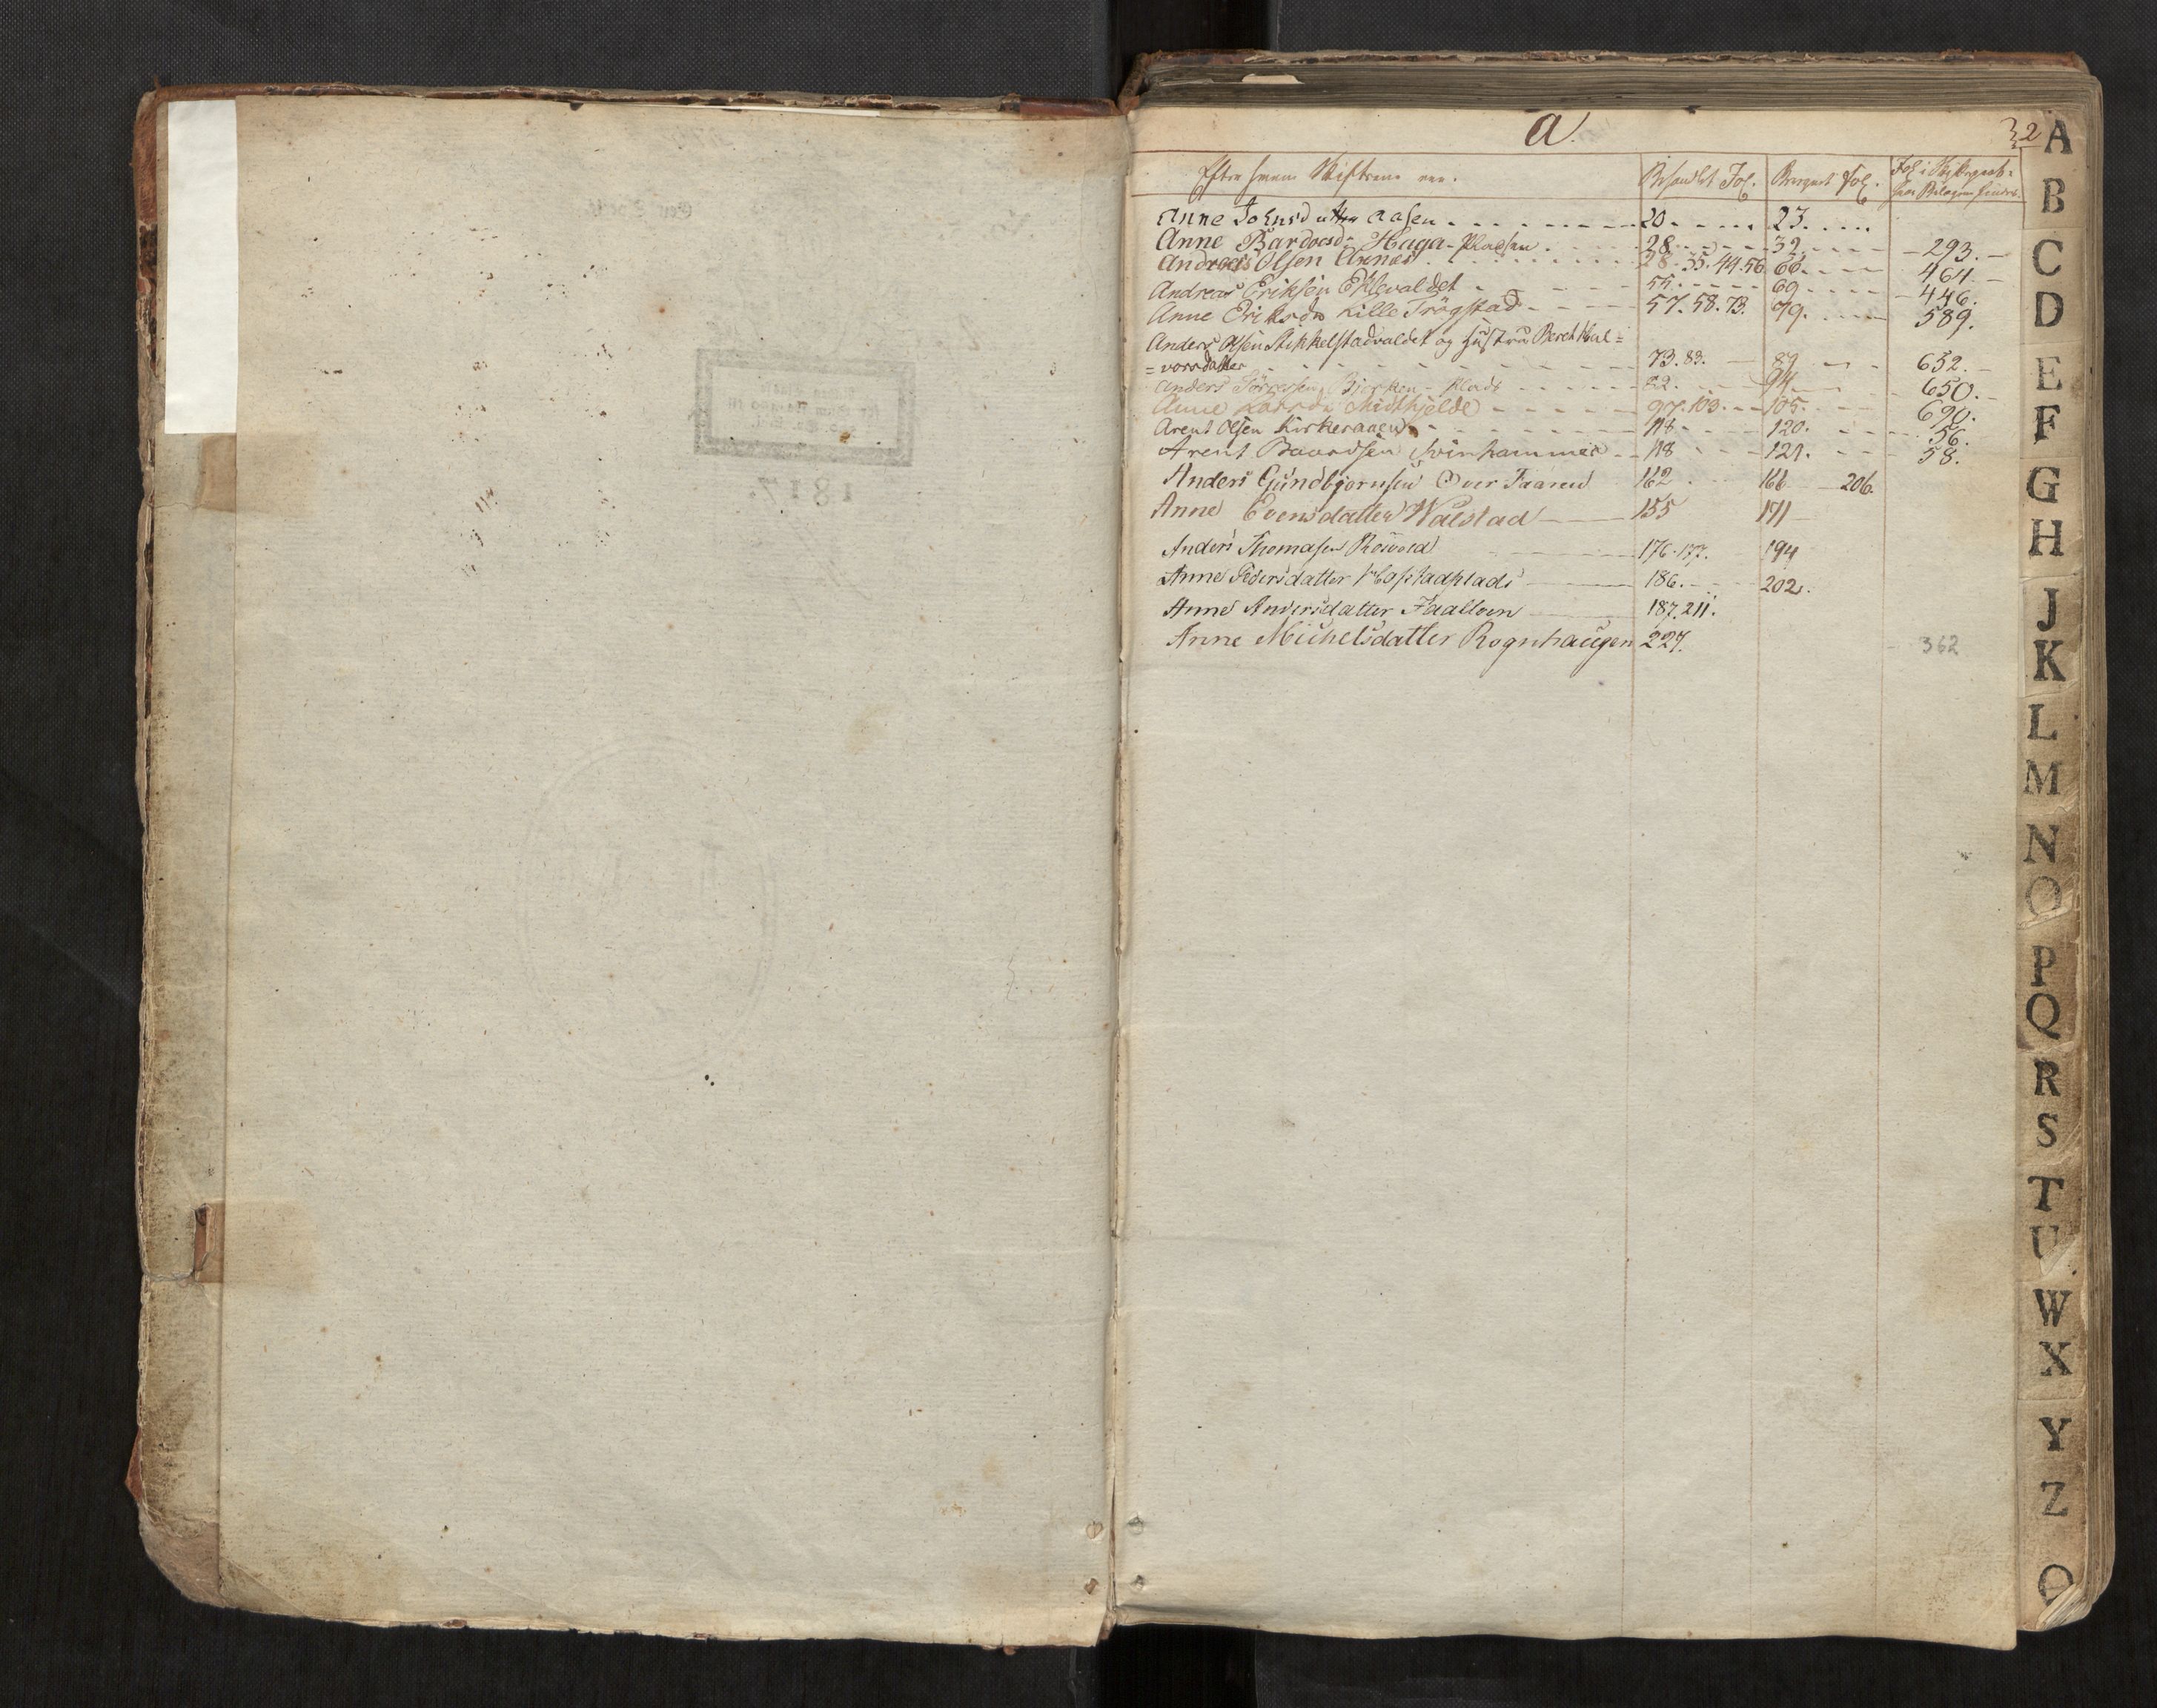 a.
2
Efter hvem Skifterne ere. Behandlet Fol. Beregnet Fol. Fol: i
Anne Johnsd utttra Aasen 20. 23.
Anne Bardosd: Haga-Pladsen 28. 32. 293.
Andreas Olsen Arnes 28. 35. 44. 56. 66. 464.
Andreas Eriksen Eklevaldet 55. 69. 446.
Anne Eriksdr Lille Trögstad 57. 58. 73. 79. 589.
Anders Olsen Stikkelstadvaldet og Hustru Beret Hal=
=vorsdatter 73. 83. 89 652.
Anders Sörensen Bjerken-Plads 82. 94 650.
Anne Larsdr Midthjelde 97. 103. 105. 690.
Arent Olsen Kirkeraaen 118 120. 56.
Arent Baardsen Svinhammer 118 121. 58.
Anders Gundbjørnsen Over Faaren 162 166 206.
Anne Evensdatter Walstad 155 171
Anders Thomasen Roswold 176. 177. 194
Anne Pedersdatter Hofstadplads 186. 202.
Anne Andersdatter Faalloen 187. 211.
Anne Michelsdatter Rognhaugen 227. 362
1817.
A
B
C
D
E
F
G
H
J
K
L
M
N
O
P
Q
R
S
T
U
W
X
Y
Z